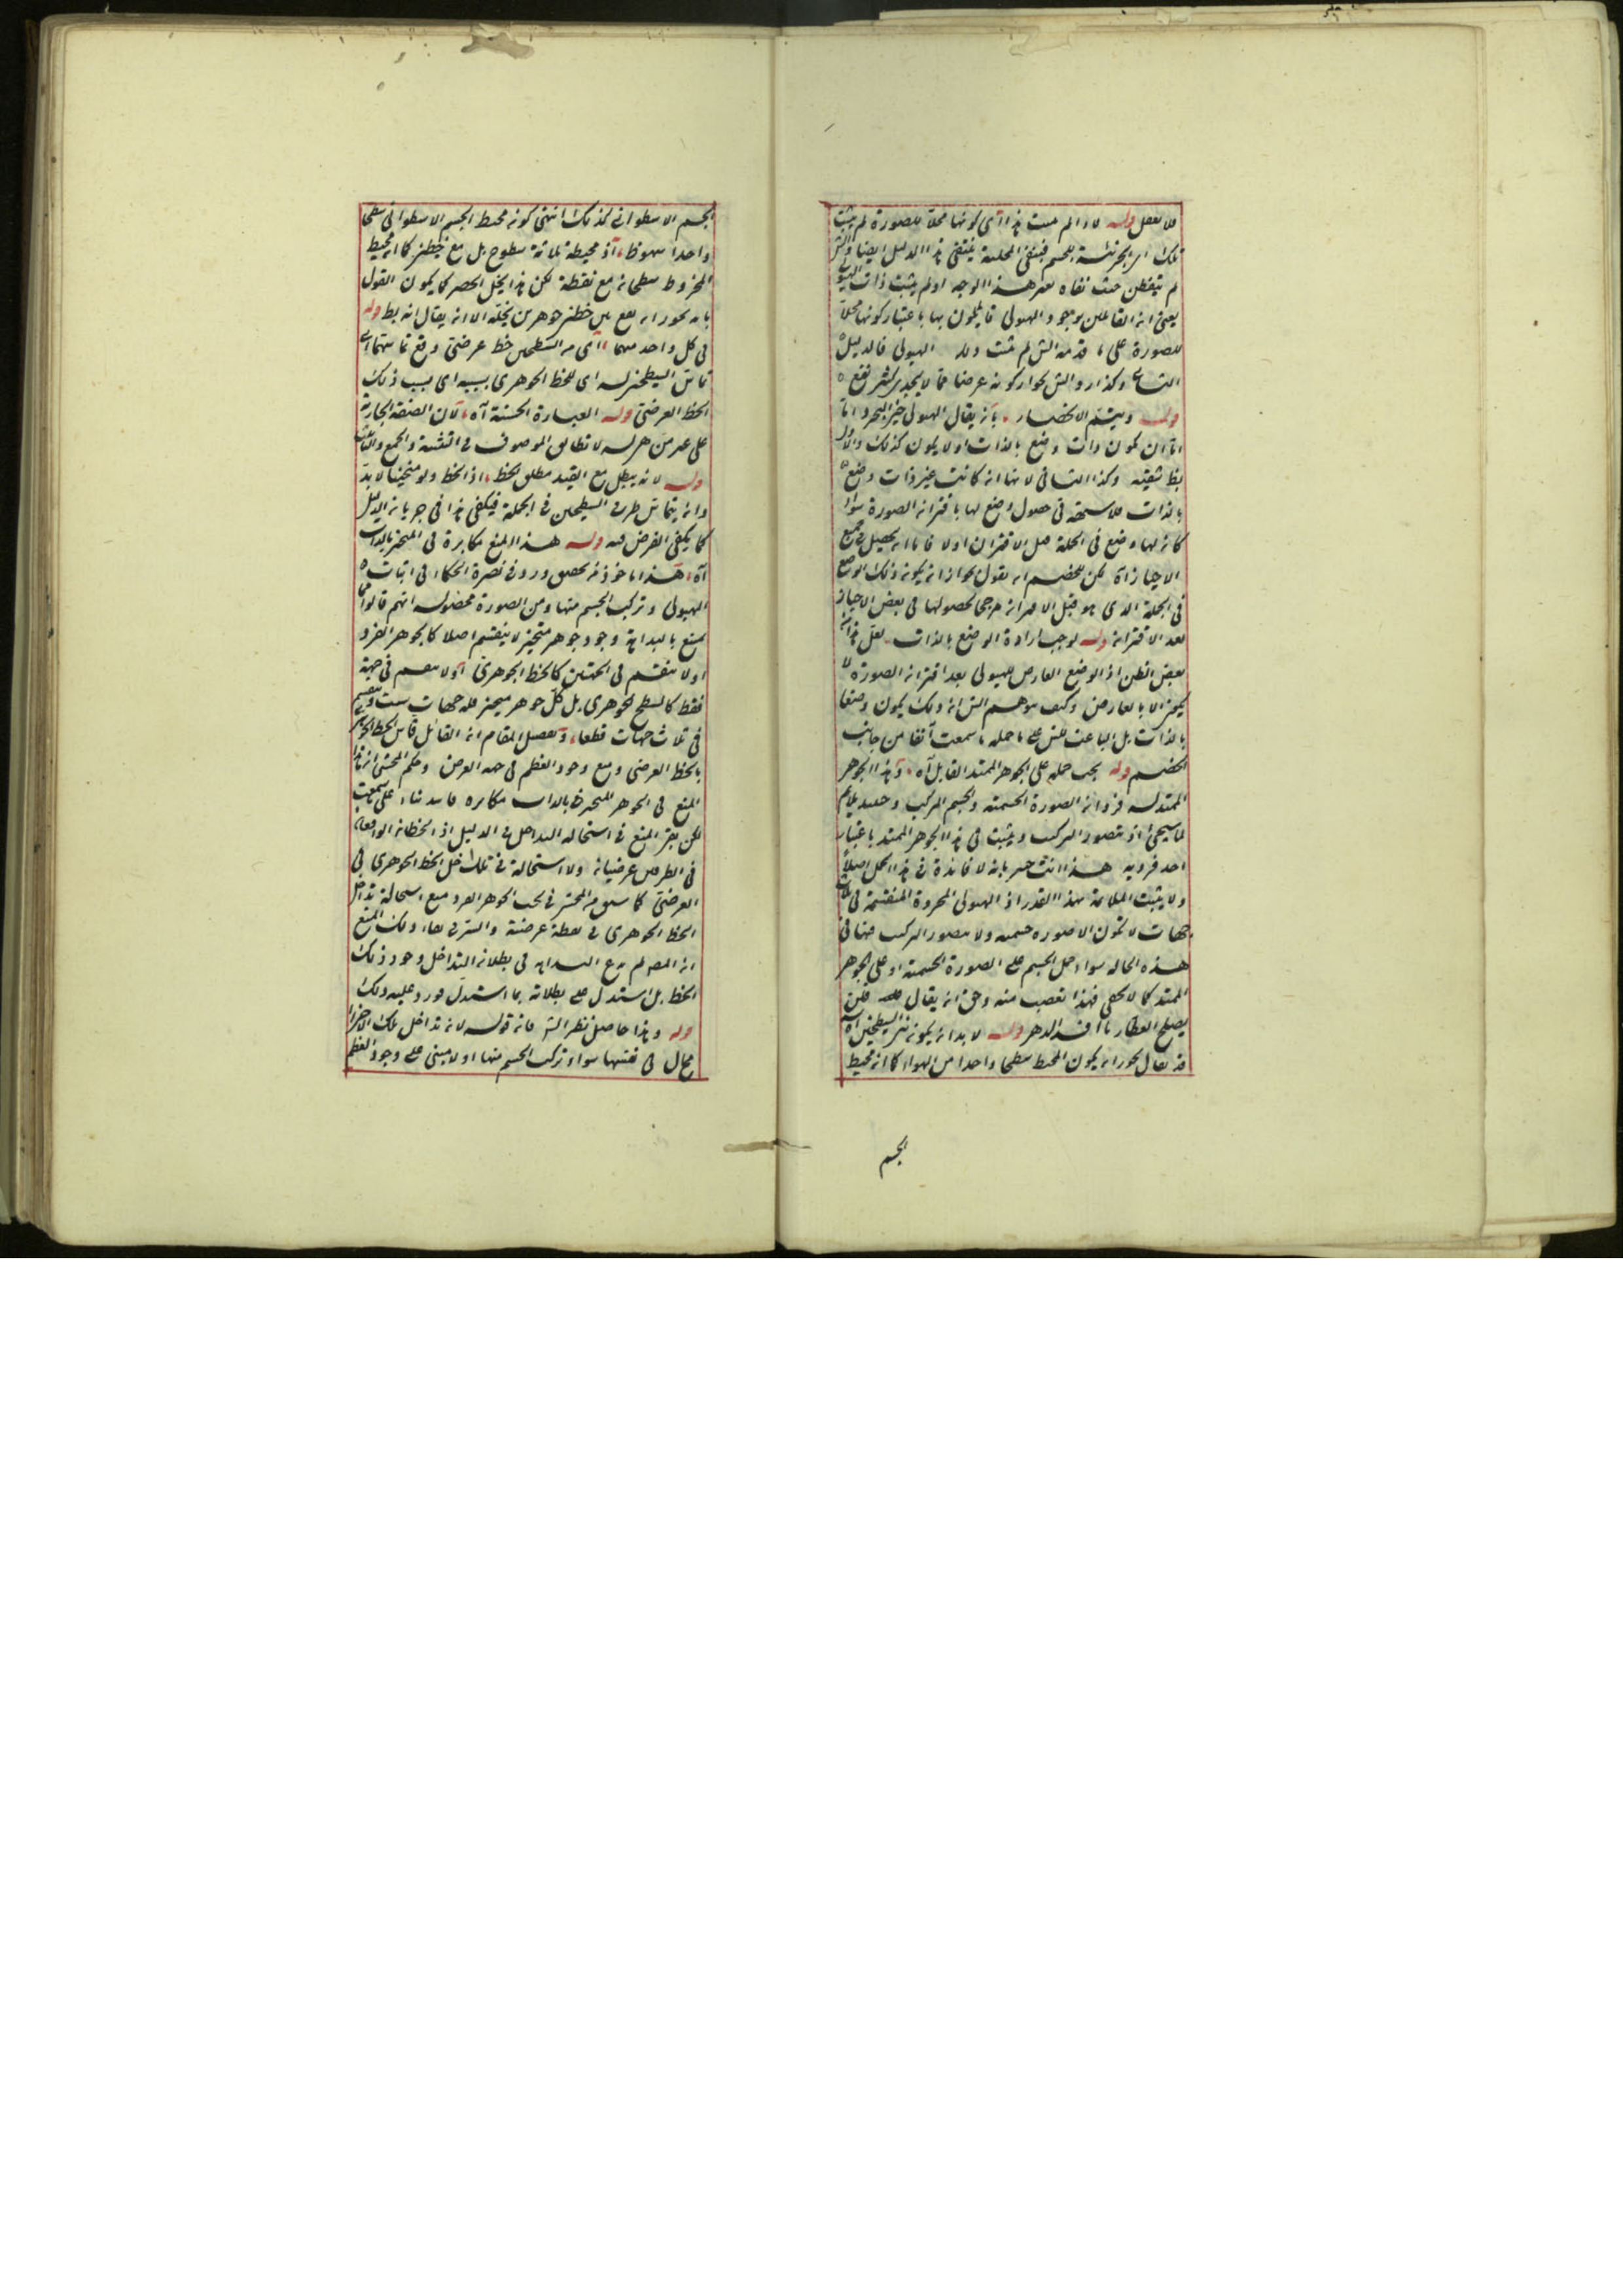 فلا تغفل قوله لانه لم يثبت هذا اى كونها محلا للصورة لم يثبت
تلك الجزئية للجسم فينتفى المحلية ينتفى هذا الدليل ايضا والش
لم يتفطن حيث نفاه بغير هذا الوجه او لم يثبت ذات الهيولى
يعنى ان القائلين بوجود الهيولى قائلون بها باعتبار كونها محلا
للصورة على الش لم يثبت الهيولى فالدليل
كونه عرضا مما لا يجدى كثير نفع
قوله ويتم الانحصار بان يقال الهيولى اما
اما ان يكون ذات وضع بالذات او لا يكون كذلك والاول
بط بشقيه وكذا الثانى لانها ان كانت غير ذات وضع
بالذات فى حصول وضع لها باقتران الصورة سواء
كان لها وضع فى الجملة قبل الاقتران او لا فاما ان يحصل فى جميع
الاحياز آه لكن للخصم ان يقول بجواز ان يكون ذلك الوضع
فى الجملة الذى هو قبل الاقتران مرجحا لحصولها فى بعض الاحياز
بعد الاقتران قوله لوجب ارادة الوضع بالذات لعل هذا
بعض الظن اذ الوضع العارض للهيولى بعد اقتران الصورة لا
يكون الا بالعارض وكيف يتوهم الش ان ذلك يكون وضعا
بالذات بل الباعث للش على ما حمله ما سمعت آنفا من جانب
الخصم قوله يجب حمله على الجوهر الممتد القابل آه وهذا الجوهر
الممتد له فردان الصورة الجسمية والجسم المركب وحينئذ يلائم
لما سيجئ اذ يتصور التركيب ويثبت فى هذا الجوهر الممتد باعتبار
احد فرديه هذا انت خبير بانه لا فائدة فى هذا الحمل اصلا
ولا يثبت الملائمة بهذا القدر اذ الهيولى المجردة المنقسمة فى ثلث
جهات لا تكون الا صورة جسمية ولا يتصور التركيب منها فى
هذه الحالة سواء حمل الجسم على الصورة الجسمية او على الجوهر
الممتد كما لا يخفى فهذا تعصب منه وحق ان يقال فلن
يصلح العطار ما افسد الدهر قوله لا بد ان يكون بين السطحين آه
قد يقال يجوز ان يكون المحيط سطحا واحدا من الهواء كما ان محيط
الجسم
الجسم الاسطوانى كذلك انتهى كونه محيط الجسم الاسطوانى سطحا
واحدا سهو ظ اذ محيطه ثلاثة سطوح بل مع خطين كما ان محيط
المخروط سطحان مع نقطة لكن هذا يخل الحصر كما يكون القول
بانه يجوز ان يقع بين خطين جوهرين يخله الا ان يقال انه بط قوله
فى كل واحد منهما اى من السطحين خط عرضى وقع تماستهما اى
تماس السطحين له اى للخط الجوهرى بسببه اى بسبب ذلك
الخط العرضى قوله العبارة الحسنة آه لان الصفة الجارية
على غير من هى له لا تطابق الموصوف فى التثنية والجمع والتأنيث
قوله لانه يبطل مع القيد مطلق الخط اذ الخط ولو متحيزا لا بد
وان يتماس طرفى السطحين فى الجملة فيكفى هذا فى جريان الدليل
كما يكفى الفرض فيه قوله هذا المنع مكابرة فى المتحيز بالذات
آه هذا ماخوذ من فى نصرة الحكماء فى اثبات
الهيولى وتركب الجسم منها ومن الصورة محصوله انهم قالوا
يمتنع بالبداهة وجود جوهر متحيز لا ينقسم اصلا كالجوهر الفرد
او لا ينقسم فى الجهتين كالخط الجوهرى او لا ينقسم فى جهة
فقط كالسطح الجوهرى بل كل جوهر متحيز فله جهات ست وينقسم
فى ثلاث جهات قطعا وتفصيل المقام ان القائل قاس الخط الجوهرى
بالخط العرضى ومنع وجود العظم فى جهة العرض وحكم المحشى ان هذا
المنع فى الجوهر المتحيز بالذات مكابرة فاسد بناء على ما سمعت
لكن بقى المنع فى استحالة التداخل فى الدليل اذ الخطان الواقعان
فى الطرفين عرضيان ولا استحالة فى تداخل الخط الجوهرى فى
العرضى كما سبق من المحشى فى بحث الجوهر الفرد منع استحالة تداخل
الخط الجوهرى فى نقطة عرضية والسر فى بقاء ذلك المنع
ان المص لم يدع البداهة فى بطلان التداخل وجود ذلك
الخط بل استدل على بطلانه بما استدل فورد عليه ذلك
قوله وهذا حاصل نظر الش فان قوله لانه تداخل تلك الاجزاء
محال فى نفسها سواء تركب الجسم منها او لا مبنى على وجود العظم